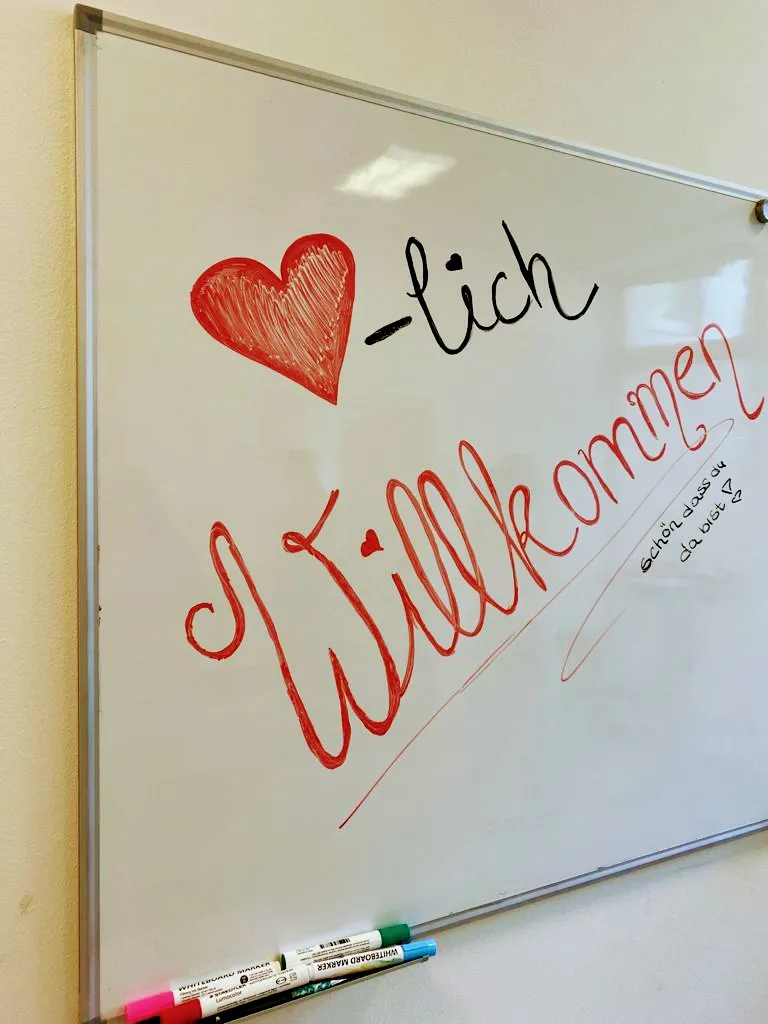 -lich
Willkommen
schön dass du
da bist
WHITEBOARD MARKER
WHITEBOARD MARKER
STAEDTLER
Lumocolor